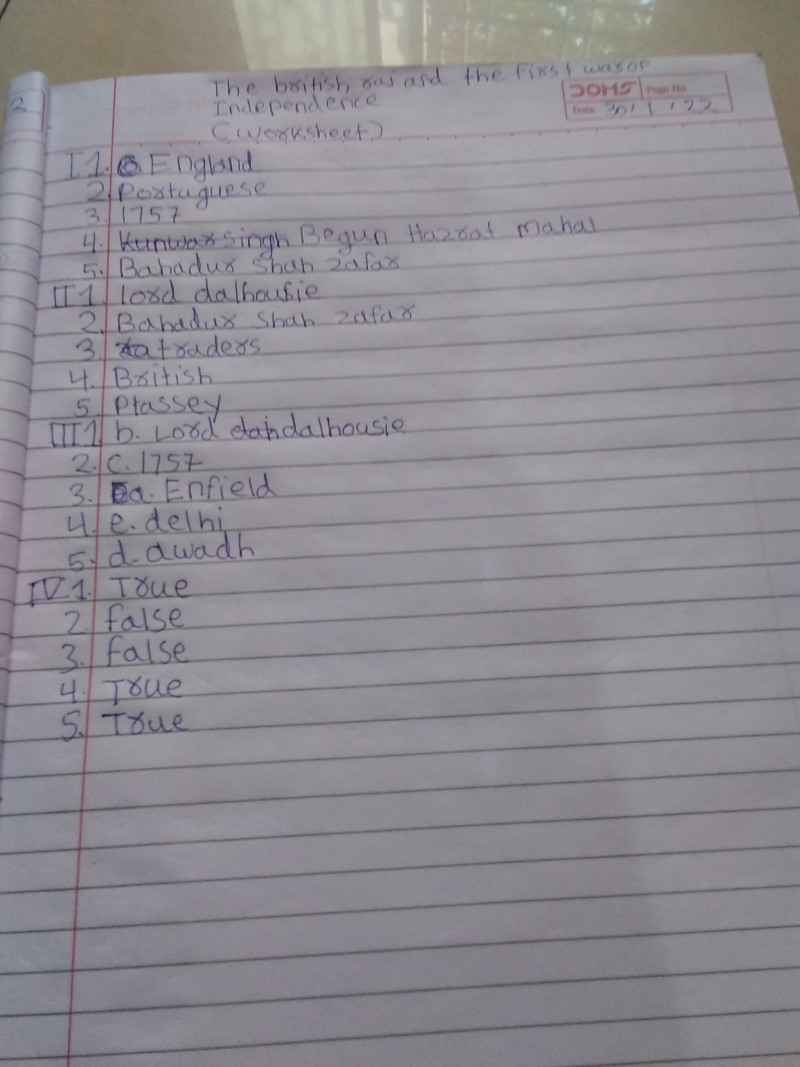 2
The british raj and the first war of
Independence
(Worksheet)
DOMS Page No.
Date 30 / 1 / 22
I 1. England
2. Portuguese
3. 1757
4. Kunwar singh Begun Hazrat mahal
5. Bahadur Shah zafar
II 1. lord dalhousie
2. Bahadur Shah zafar
3. traders
4. British
5. Plassey
III 1. b. Lord dalhousie
2. C. 1757
3. a. Enfield
4. e. delhi
5. d. awadh
IV 1. True
2. false
3. false
4. True
5. True